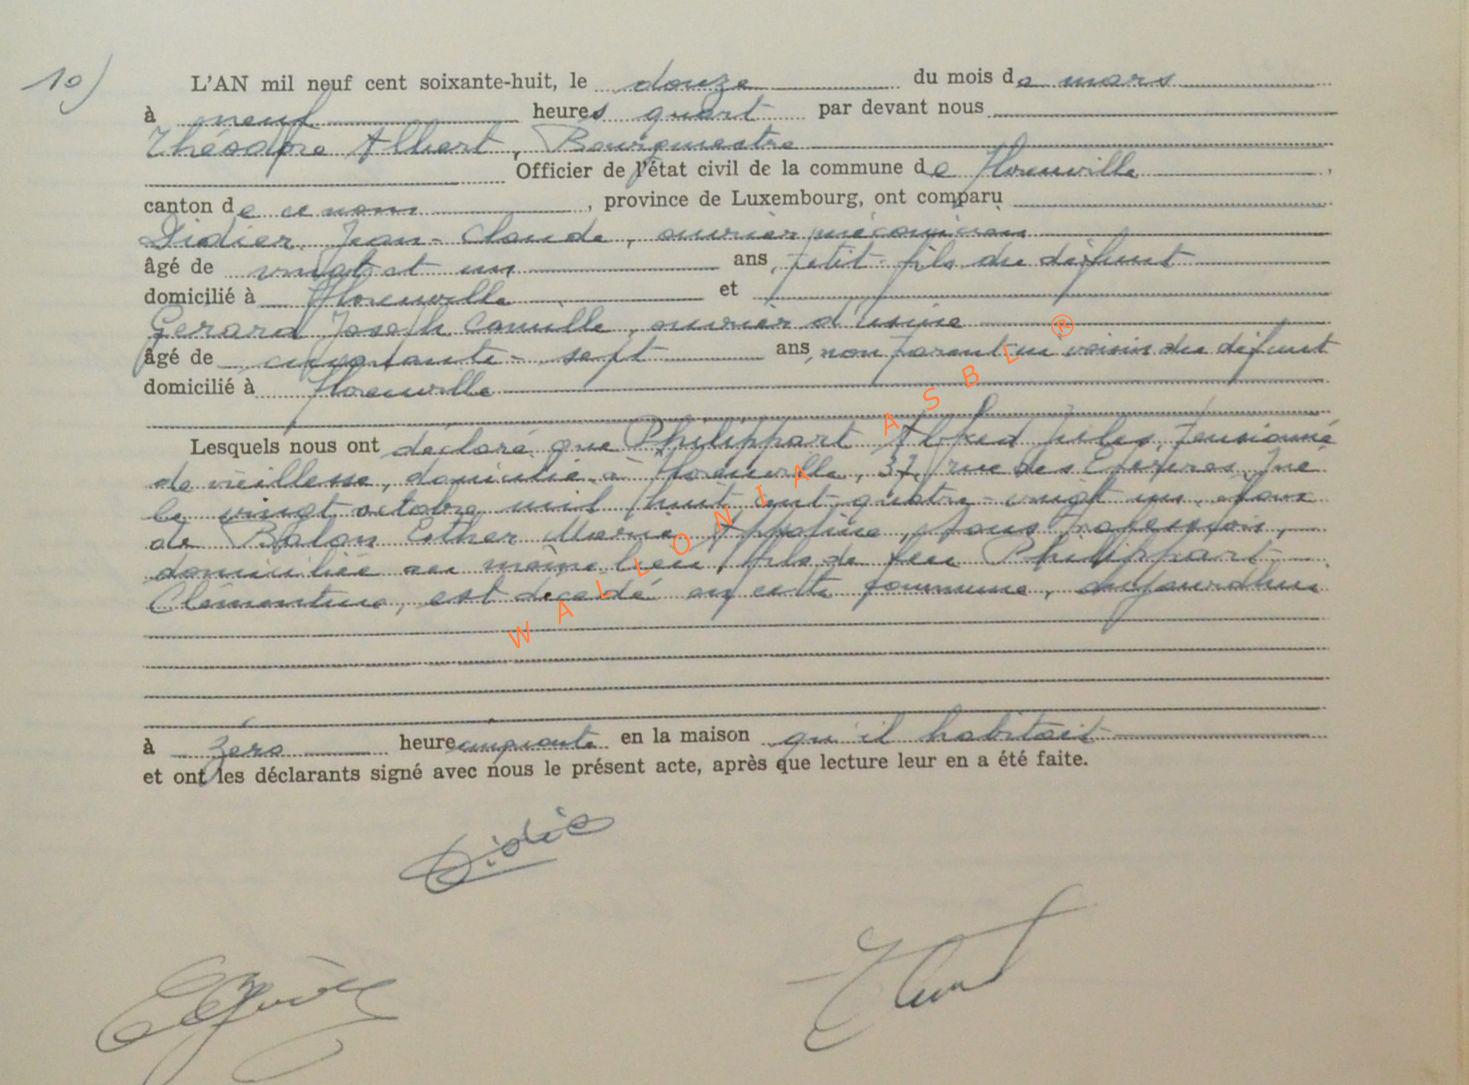 10)
L'AN mil neuf cent soixante-huit, le douze du mois de mars
à neuf heures quart par devant nous
Théodore Albert, Bourgmestre
Officier de l'état civil de la commune de Florenville,
canton de ce nom, province de Luxembourg, ont comparu
Didier Jean-Claude, ouvrier mécanicien
âgé de vingt et un ans, petit-fils du défunt
domicilié à Florenville et
Gerard Joseph Camille, ouvrier d'usine
âgé de cinquante-sept ans, non parent voisin du défunt
domicilié à Florenville
Lesquels nous ont déclaré que Philippart Alfred Jules, pensionné
de vieillesse, domicilié à Florenville, 37, rue des Epéires, né
le vingt octobre mil huit cent quatre-vingt un, époux
de Balon Esther Marie Appoline, sans profession,
domiciliée au même lieu, fils de feu Philippart
Clémentine, est décédé en cette commune, aujourd'hui
à zéro heure cinquante en la maison qu'il habitait
et ont les déclarants signé avec nous le présent acte, après que lecture leur en a été faite.
Didier
WALLONIA ASBL ®